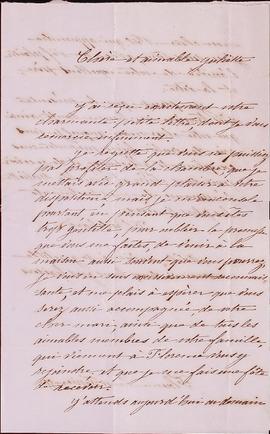 Chère et aimable Juliette
J'ai reçu exactement votre
charmante petite lettre, dont je vous
remercie infiniment.
Je regrette que vous ne puissiez
pas profiter de la chambre que je
mettais avec grand plaisir à votre
disposition, mais je me console
partant, en pensant que vous êtes
trop gentille, pour oublier la promesse
que vous me faites, de venir à la
maison aussi souvent que vous pourrez
Je vous en suis
sante, et me plais à espérer que vous
serez aussi accompagnée de votre
cher mari, ainsi que de tous les
aimables membres de votre famille
qui viennent à Florence vous y
rejoindre, et que je me fais une fête
de recevoir.
J'attends aujourd'hui ou demain